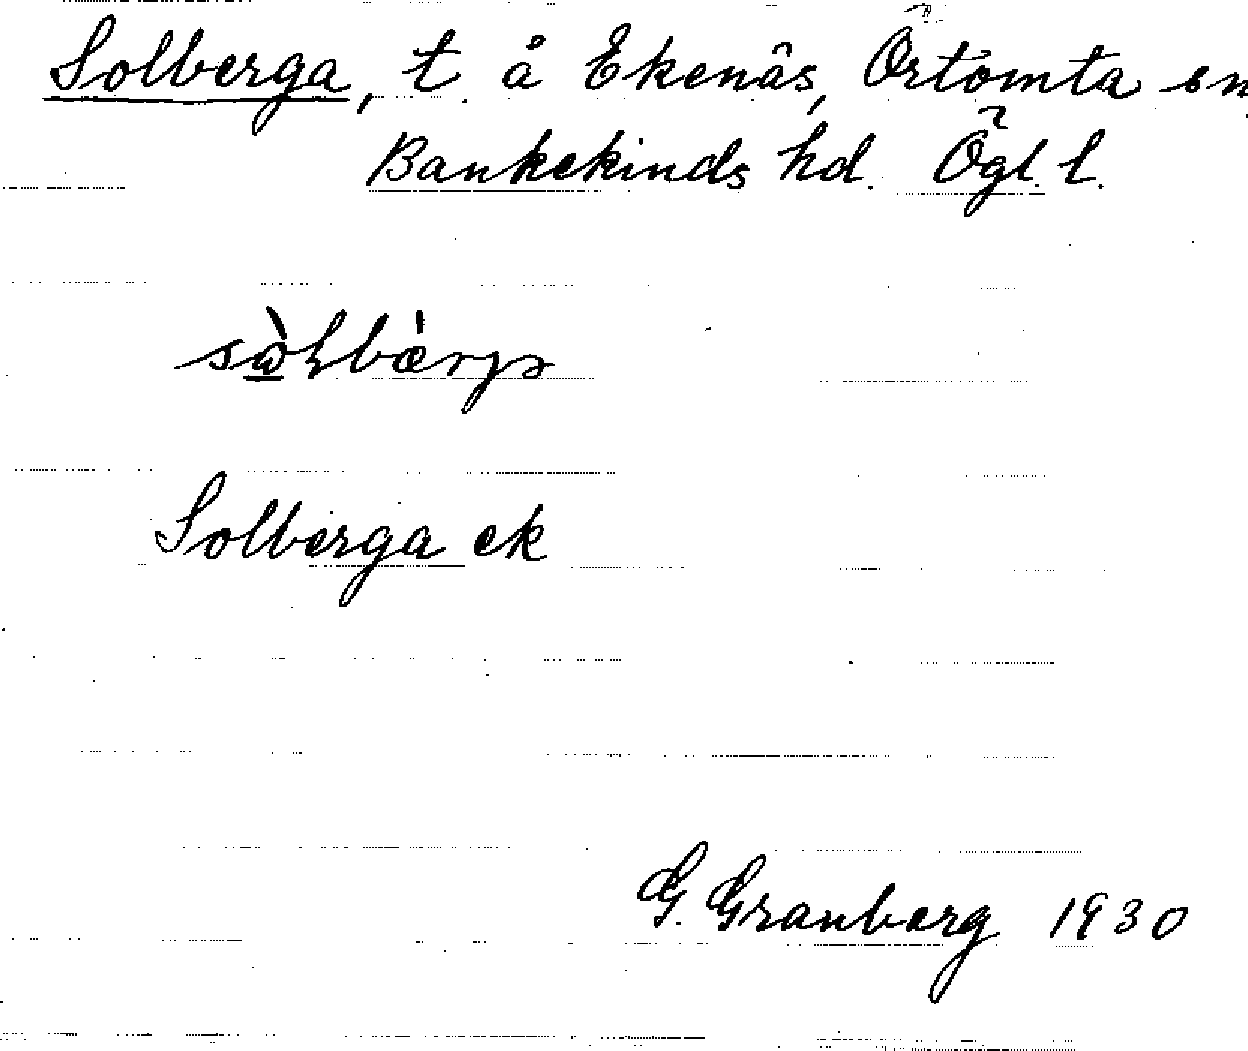 Solberga, t. å Ekenäs, Örtomta sn
Bankekinds hd. Ögl. l.
Solberga ek
G. Granberg 1930